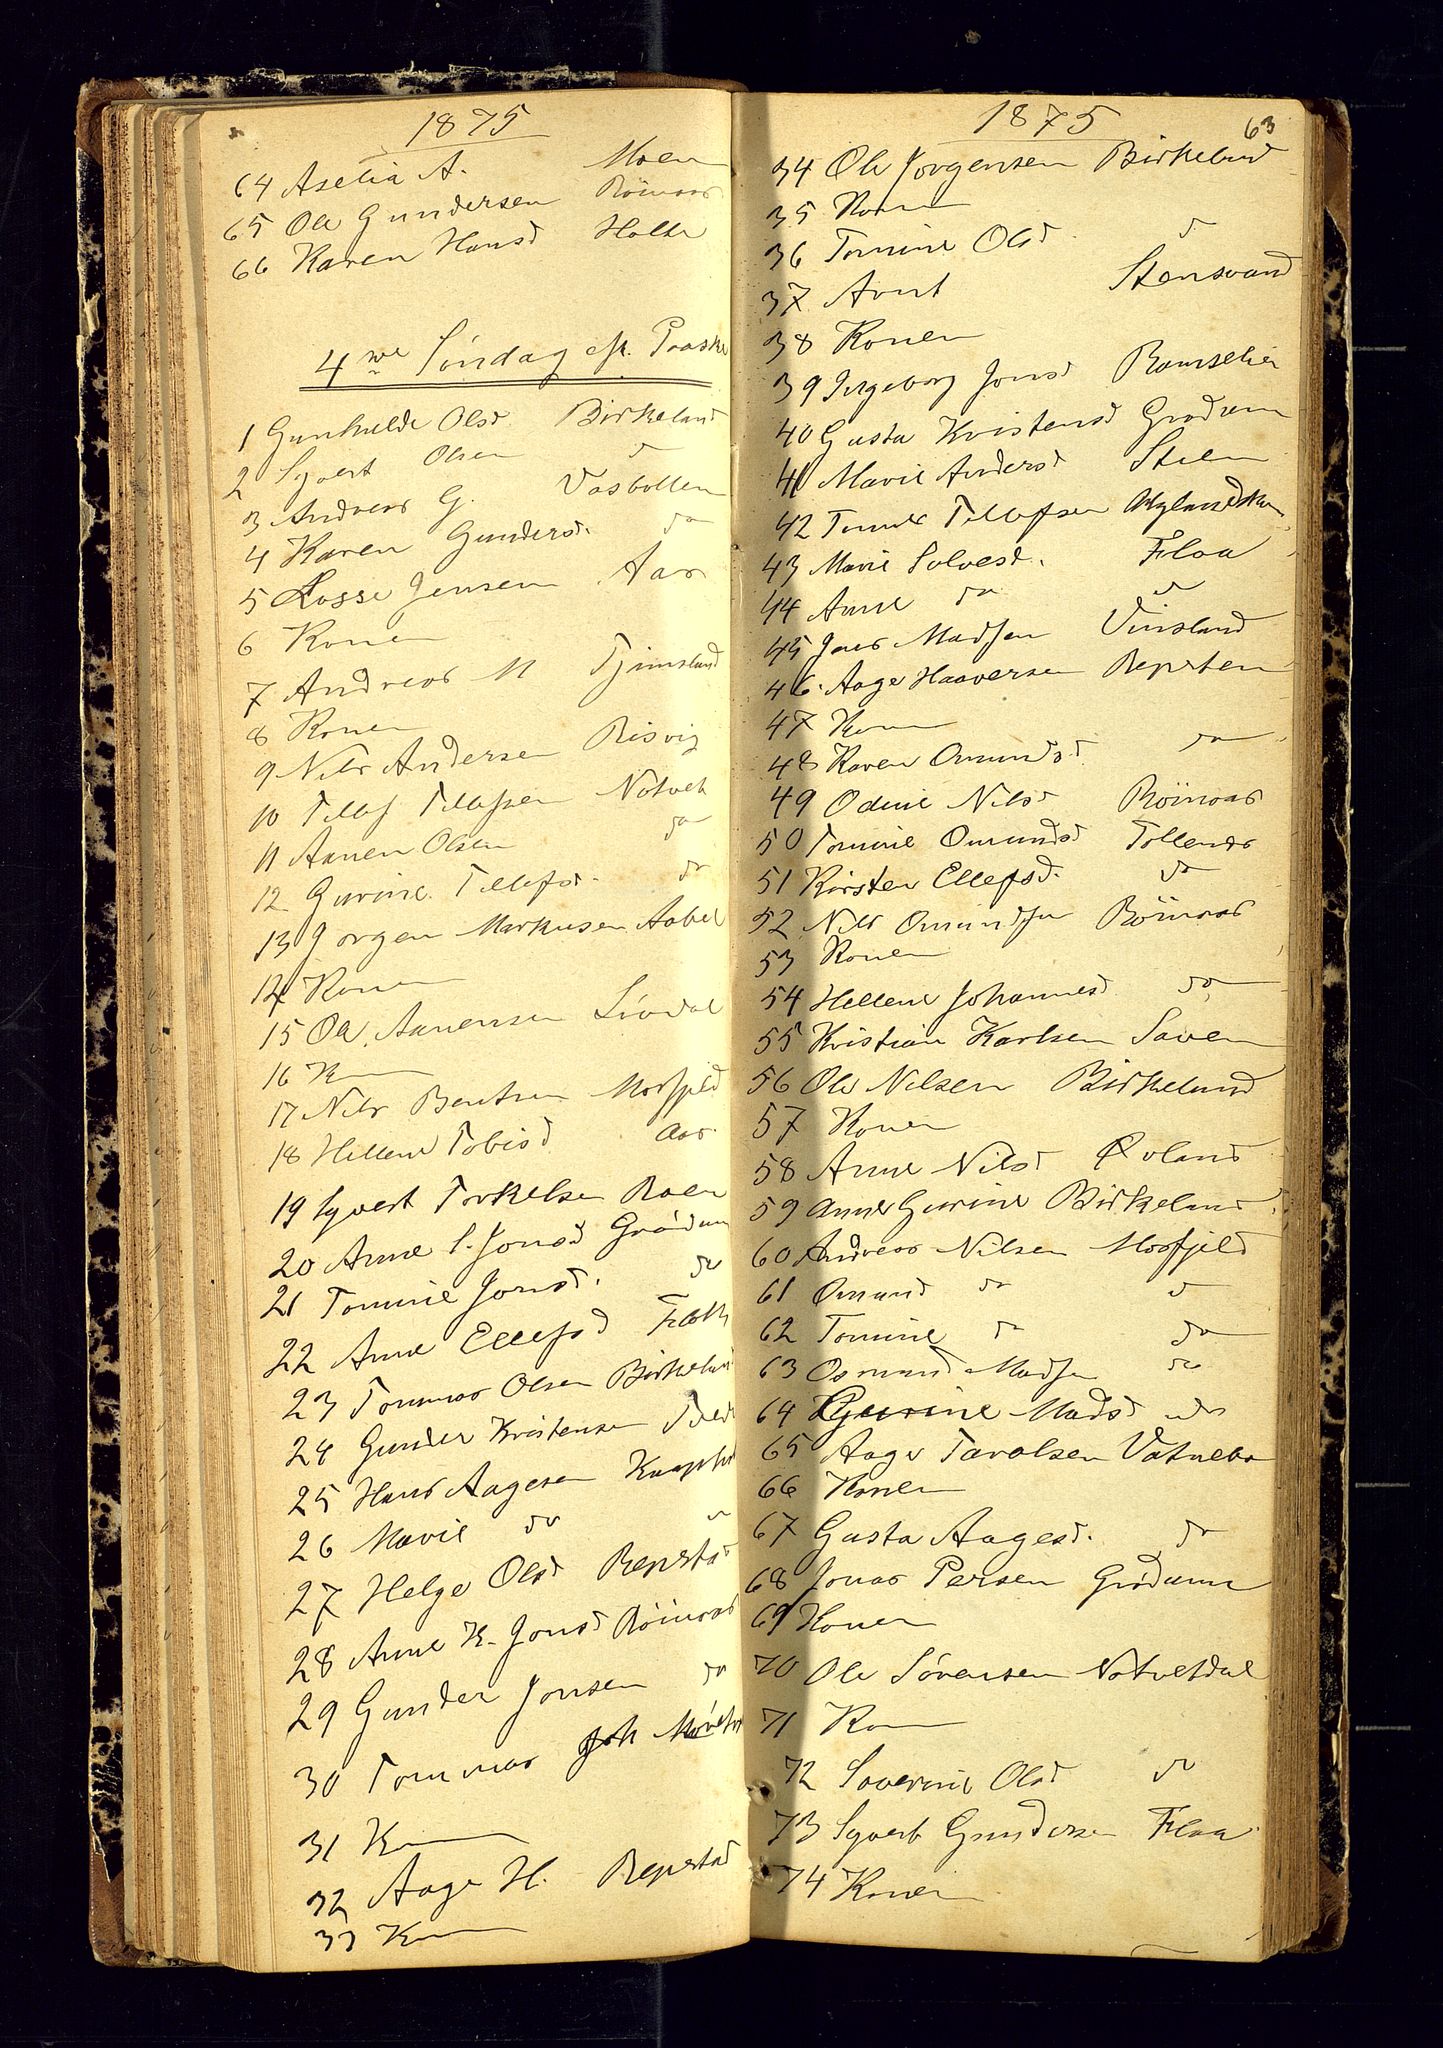 1875
64 Aselia A. Moen
65 Ole Gundersen Röinaas
66 Karen Hansd Holte
4de Söndag eft. Paaske
1 Gunhilde Olsd. Birkeland
2 Syvert Olsen do
3 Andreas G. Vasbotten
4 Karen Gundersd. do
5 Lasse Jensen Aas
6 Konen
7 Andreas M Tjimsland
8 Konen
9 Nils Andersen Risvig
10 Tellef Tellefsen Notvet
11 Aanen Olsen do
12 Gurine Tellefsd. do
13 Jorgen Markusen Aabel
14 Konen
15 Ole Aanensen Livdal
16 Konen
17 Nils Bentsen Mosfjeld
18 Hellene Tobisd Aas
19 Syvert Torkelsen Roen
20 Anne S. Jonsd Grödum
21 Tomine Jonsd. do
22 Anne Ellefsd
23 Tommas Olsen Birkeland
24 Gunder Kristensen
25 Hans Aagesen
26 Marie do do
27 Helge Olsd Repstad
28 Anne K. Jonsd Röinaas
29 Gunder Jonsen do
30 Tommas Joh
31 Konen
32 Aage H. Repstad
33 Konen
1875 63
34 Ole Jorgensen Birkeland
35 Konen
36 Tomine Olsd do
37 Arnt Stensvand
38 Konen
39 Ingeborg Jonsd Ramselien
40 Gusta Kristensd Grödum
41 Marie Andersd Steen
42 Tellefsen
43 Marie Solvesd. Flaa
44 Anne do do
45 Jens Madsen Vinsland
46 Aage Haaversen Repsten
47 Konen
48 Karen Omundsd. do
49 Odine Nilsd Röinaas
50 Tomine Omundsd Tollenes
51 Kirsten Ellefsd. do
52 Nils Omundsen Röinaas
53 Konen
54 Hellene Johannesd do
55 Kristian Karlsen Saven
56 Ole Nilsen Birkeland
57 Konen
58 Anne Nilsd Øvland
59 Anne Gurine Birkeland
60 Andreas Nilsen Mosfjeld
61 Omund do do
62 Tomine do do
63 Osmund Madsen do
64 Gurine Madsd do
65 Aage Taralsen Vatnebo
66 Konen
67 Gusta Aagesd. do
68 Jonas Persen Grödum
69 Konen
70 Ole Sörensen Notvetdal
71 Konen
72 Saverine Olsd do
73 Syvert Gundersen Flaa
74 Konen